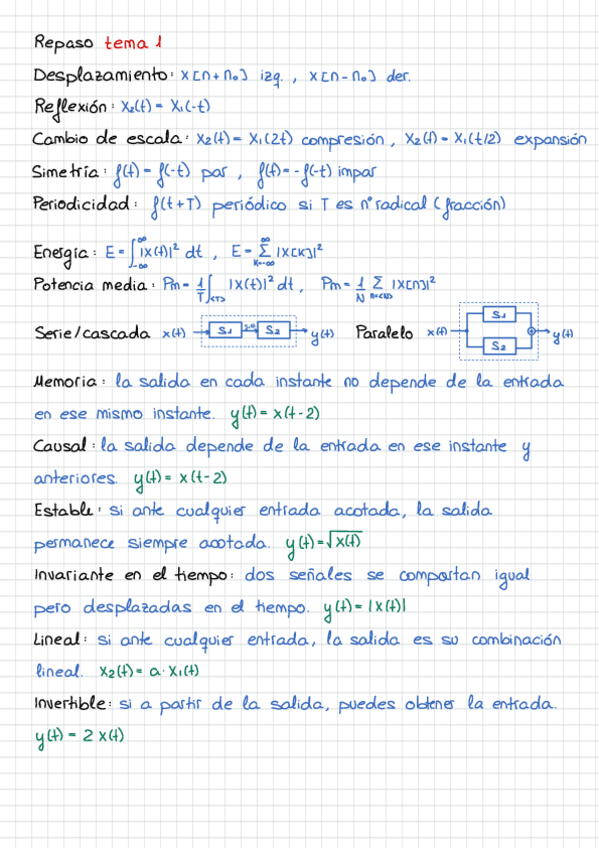 Repaso tema 1
Desplazamiento: x[n+n₀] izq. , x[n-n₀] der.
Reflexión: x₂(t) = x₁(-t)
Cambio de escala: x₂(t) = x₁(2t) compresión , x₂(t) = x₁(t/2) expansión
Simetría: f(t) = f(-t) par , f(t) = -f(-t) impar
Periodicidad: f(t+T) periódico si T es nº radical (fracción)
Energía: E = ∫_{-∞}^{∞} |x(t)|² dt , E = Σ_{k=-∞}^{∞} |x[k]|²
Potencia media: Pm = 1/T ∫_{<T>} |x(t)|² dt , Pm = 1/N Σ_{n=<N>} |x[n]|²
Serie/cascada x(t) S1 S2 y(t) Paralelo x(t) S1 S2 y(t)
Memoria: la salida en cada instante no depende de la entrada
en ese mismo instante. y(t) = x(t-2)
Causal: la salida depende de la entrada en ese instante y
anteriores. y(t) = x(t-2)
Estable: si ante cualquier entrada acotada, la salida
permanece siempre acotada. y(t) = √x(t)
Invariante en el tiempo: dos señales se comportan igual
pero desplazadas en el tiempo. y(t) = |x(t)|
Lineal: si ante cualquier entrada, la salida es su combinación
lineal. x₂(t) = a·x₁(t)
Invertible: si a partir de la salida, puedes obtener la entrada.
y(t) = 2 x(t)